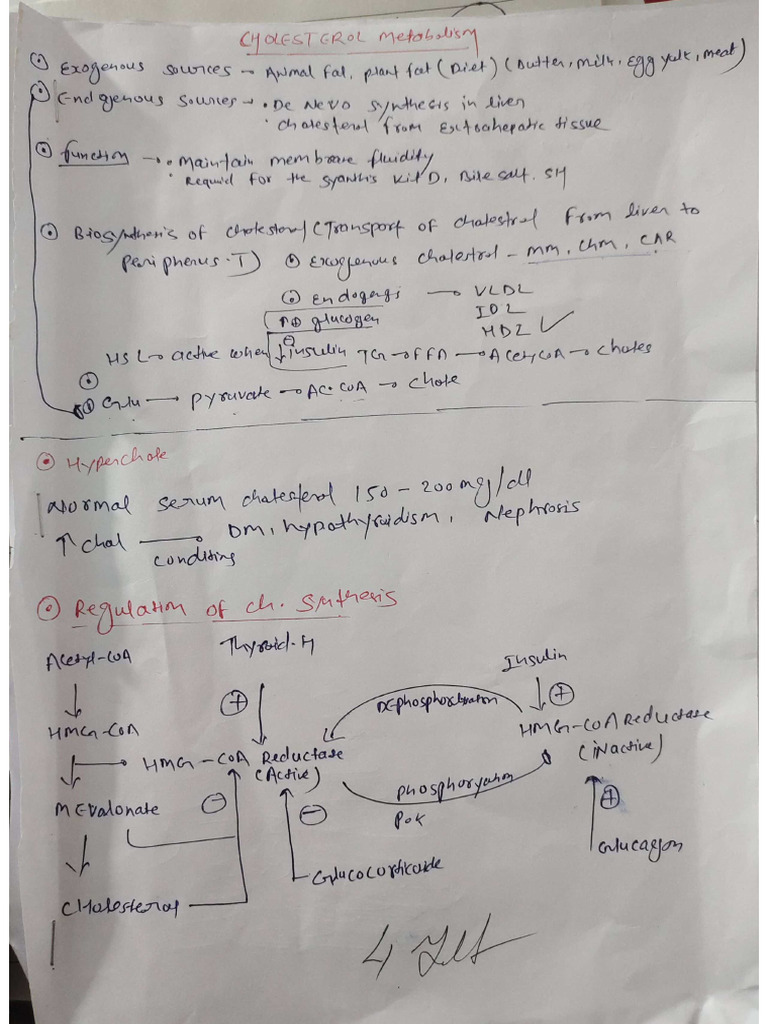 CHOLESTEROL Metabolism
Exogenous sources → Animal Fat, plant fat (Diet) (Butter, milk, Egg yulk, meat)
Endgenous sources → • De Nevo synthesis in liver
• cholesterol from Extrahepatic tissue
function → • Maintain membrane fluidity
• Requid for the synthis vit D, Bile salt. SH
Biosynthesis of cholesterol (Transport of cholestrol from liver to
peripherus.T)
Exogenous cholestrol - MM, ChM, CAR
Endogegs → VLDL
IDL
HDL ✓
↑ ⊕ glucogen
HSL → active when ↓ ⊖ insulin TG → FFA → Acetyl CoA → choles
Glu → pyruvate → AC.COA → chole
Hyperchole
Normal serum cholesterol 150 - 200 mg/dl
↑ chol → DM, hypothyruidism, Nephrosis
conditing
Regulation of ch. synthesis
Acetyl-COA
Thyroid-H
Insulin
⊕
⊕
DEphosphorelration
HMG-COA
HMG-COA Reductase
(iNactive)
HMG-COA Reductase
(Active)
phosphorylation
⊕
MEvalonate
⊖
⊖
Glucagon
Glucocorticoide
CHolesterol